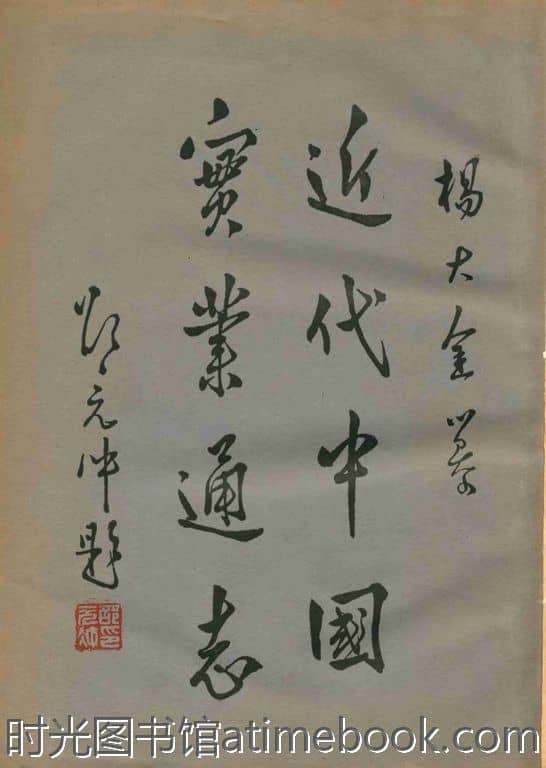 楊大金纂
近代中國
實業通志
邵元冲題
時光图书馆atimebook.com